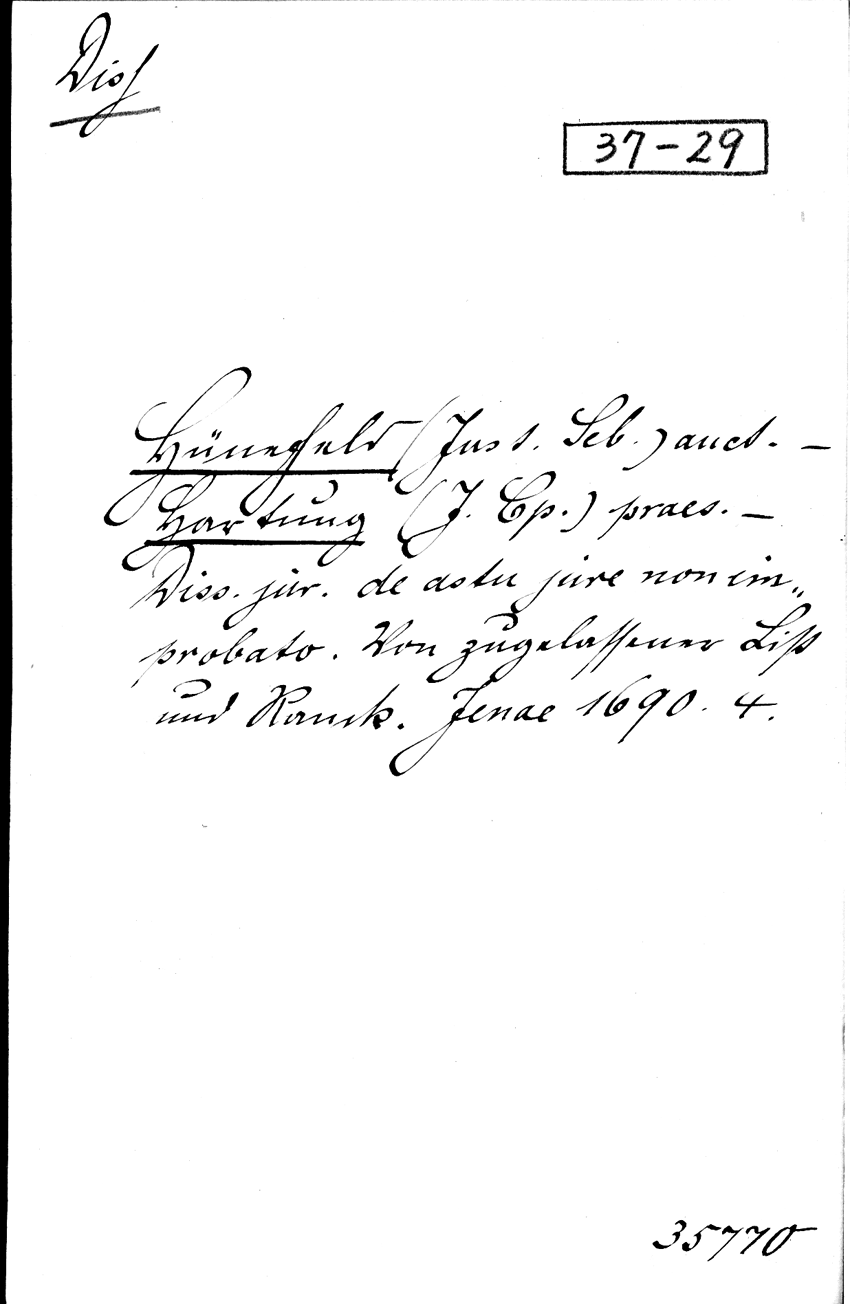 Diss
37-29
Hünefeld (Just. Seb.) auct. —
Hartung (J. Cp.) praes. —
Diss. jur. de astu jure non im„
probato. Von zugelassener List
und Ranck. Jenae 1690. 4.
35770